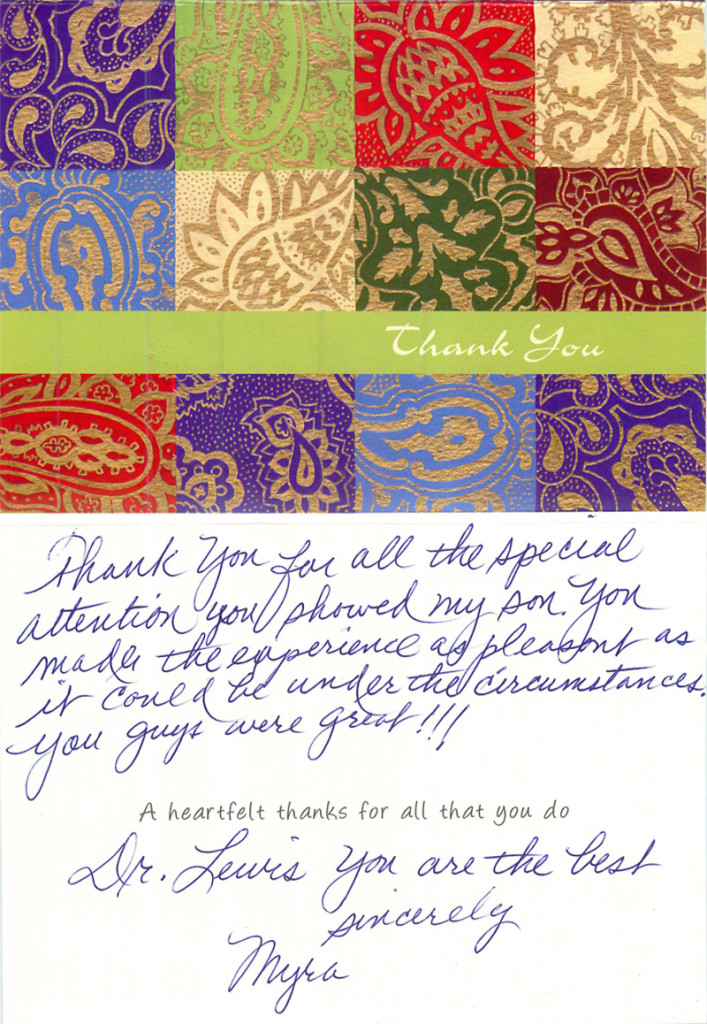 Thank You
Thank You for all the special
attention you showed my son. You
made the experience as pleasant as
it could be under the circumstances.
You guys were great!!!
A heartfelt thanks for all that you do
Dr. Lewis You are the best
sincerely
Myra